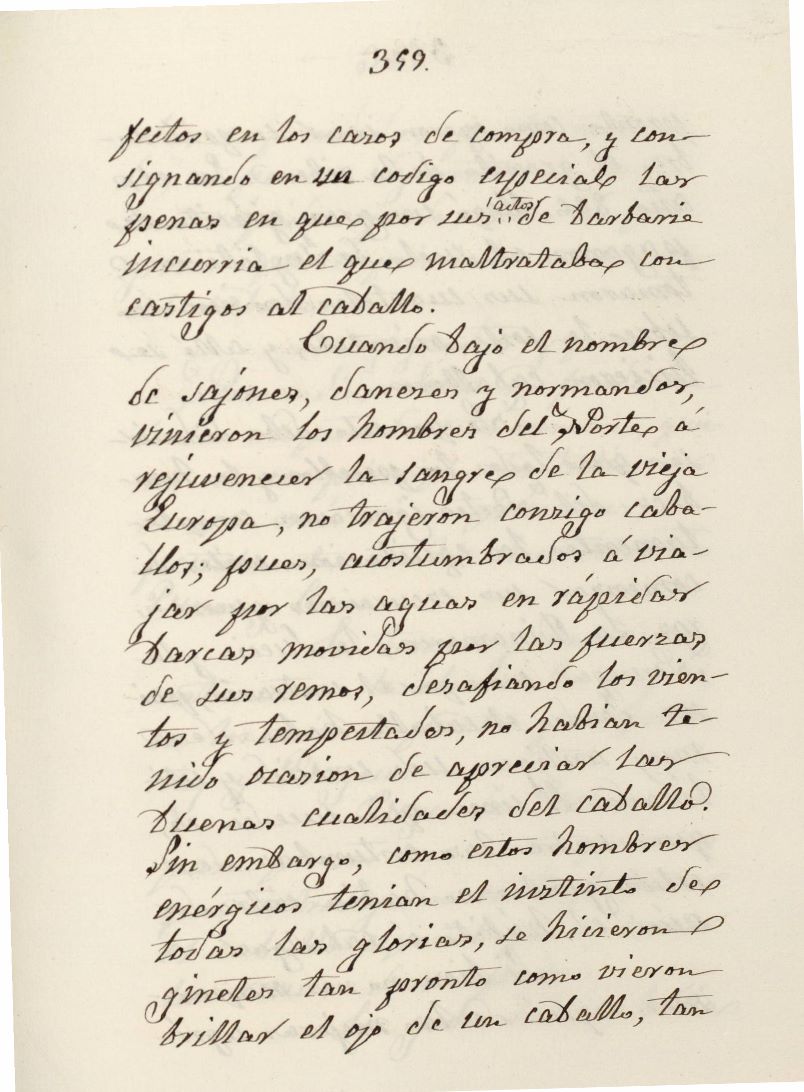 359.
fectos en los casos de compra, y con-
signando en un codigo especial las
penas en que por sus actos de barbarie
incurria el que maltrataba con
castigos al caballo.
Cuando bajo el nombre
de sajónes, daneses y normandos,
vinieron los hombres del Norte á
rejuvenecer la sangre de la vieja
Europa, no trajeron consigo caba-
llos; pues, acostumbrados á via-
jar por las aguas en rápidas
barcas movidas por las fuerzas
de sus remos, desafiando los vien-
tos y tempestades, no habian te-
nido ocasion de apreciar las
buenas cualidades del caballo.
Sin embargo, como estos hombres
enérgicos tenian el instinto de
todas las glorias, se hicieron
ginetes tan pronto como vieron
brillar el ojo de un caballo, tan